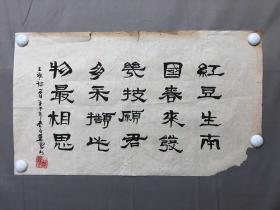 紅豆生南
國春來發
幾枝願君
多采擷此
物最相思